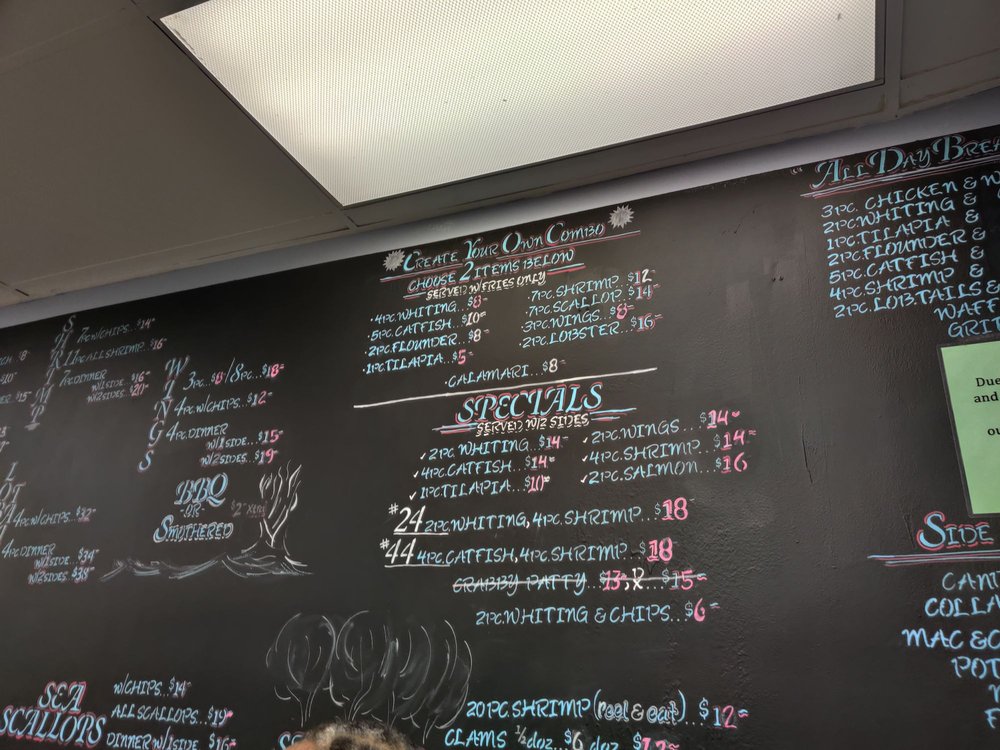 CH. $8
SHRIMP
7PC W/CHIPS...$14
11PC ALL SHRIMP...$16
7PC DINNER
W/1 SIDE...$16
W/2 SIDES...$20
WINGS
3PC...$8/8PC...$18
4PC W/CHIPS...$12
4PC. DINNER
W/1 SIDE...$15
W/2 SIDES...$19
BBQ
-OR-
SMOTHERED
$2 XTRA
4PC W/CHIPS...$32
4PC. DINNER
W/1 SIDE...$34
W/2 SIDES...$38
SEA SCALLOPS
W/CHIPS...$14
ALL SCALLOPS...$19
DINNER W/1 SIDE $16
CREATE YOUR OWN COMBO
CHOOSE 2 ITEMS BELOW
SERVED W/FRIES ONLY
·4PC. WHITING...$8
·5PC. CATFISH...$10
·2PC. FLOUNDER...$8
·1PC TILAPIA...$5
·7PC. SHRIMP...$12
·7PC. SCALLOP...$14
·3PC. WINGS...$8
·2PC. LOBSTER...$16
·CALAMARI...$8
SPECIALS
SERVED W/2 SIDES
✓2PC. WHITING...$14
✓4PC. CATFISH...$14
✓1PC TILAPIA...$10
✓2PC. WINGS...$14
✓4PC. SHRIMP...$14
✓2PC. SALMON...$16
#24 2PC. WHITING, 4PC. SHRIMP...$18
#44 4PC. CATFISH, 4PC. SHRIMP...$18
CRABBY PATTY...$13, R...$15
2PC. WHITING & CHIPS...$6
20 PC. SHRIMP (peel & eat)...$12
CLAMS ½ doz...$6 doz...$12
"ALL DAY BREA
3PC. CHICKEN & W
2PC. WHITING &
1PC. TILAPIA &
2PC. FLOUNDER &
5PC. CATFISH &
4PC. SHRIMP &
2PC. LOB. TAILS &
WAFF
GRIT
Due
and
ou
SIDE
CAN
COLLA
MAC & C
POT